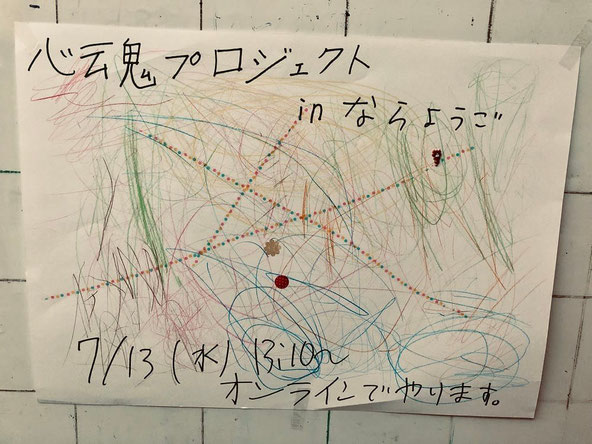 心魂プロジェクト
in ならようご
7/13(水)13:10〜
オンラインでやります。